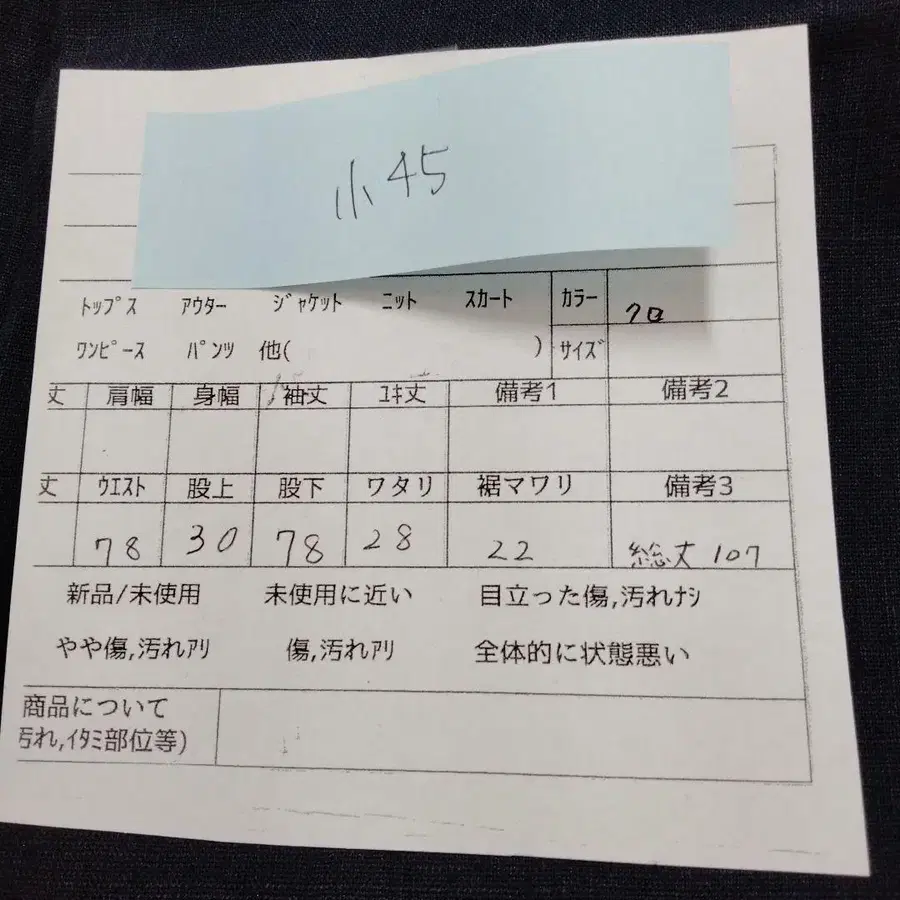 小45
トップス アウター ジャケット ニット スカート カラー クロ
ワンピース パンツ 他( ) サイズ
丈 肩幅 身幅 袖丈 ユキ丈 備考1 備考2
丈 ウエスト 股上 股下 ワタリ 裾マワリ 備考3
78 30 78 28 22 総丈 107
新品/未使用 未使用に近い 目立った傷,汚れナシ
やや傷,汚れアリ 傷,汚れアリ 全体的に状態悪い
商品について
汚れ,イタミ部位等)